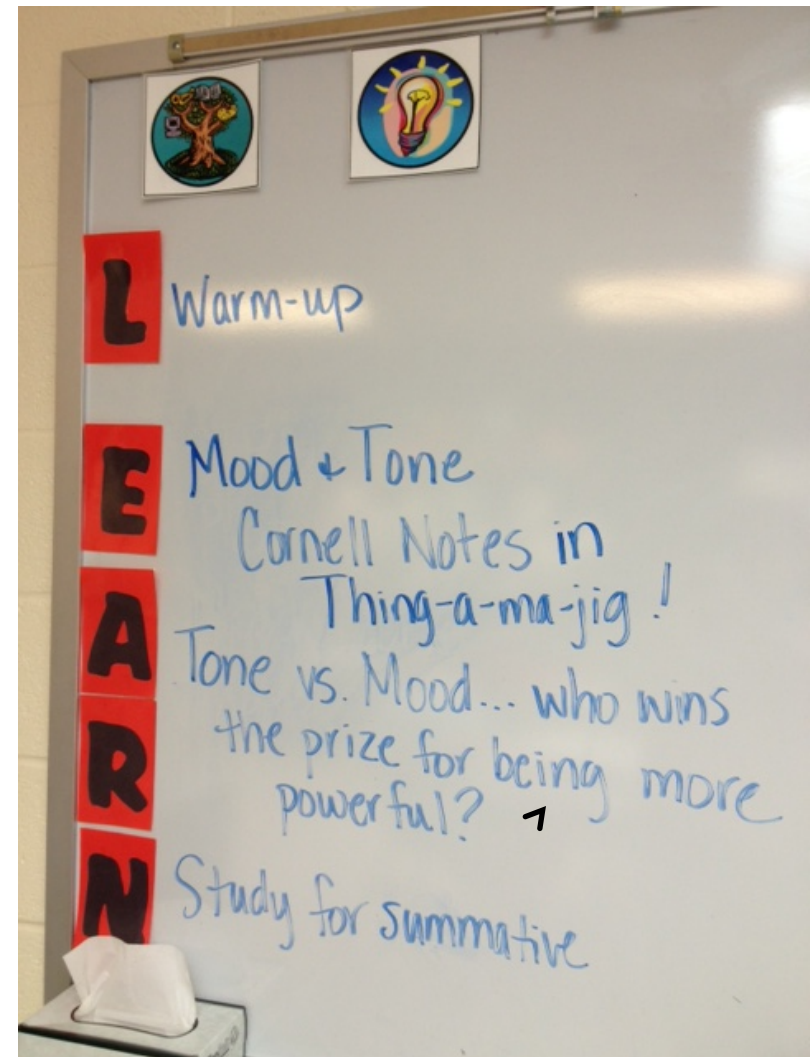 L Warm-up
E Mood & Tone
Cornell Notes in
Thing-a-ma-jig!
A Tone vs. Mood... who wins
R the prize for being more
powerful?
N Study for summative